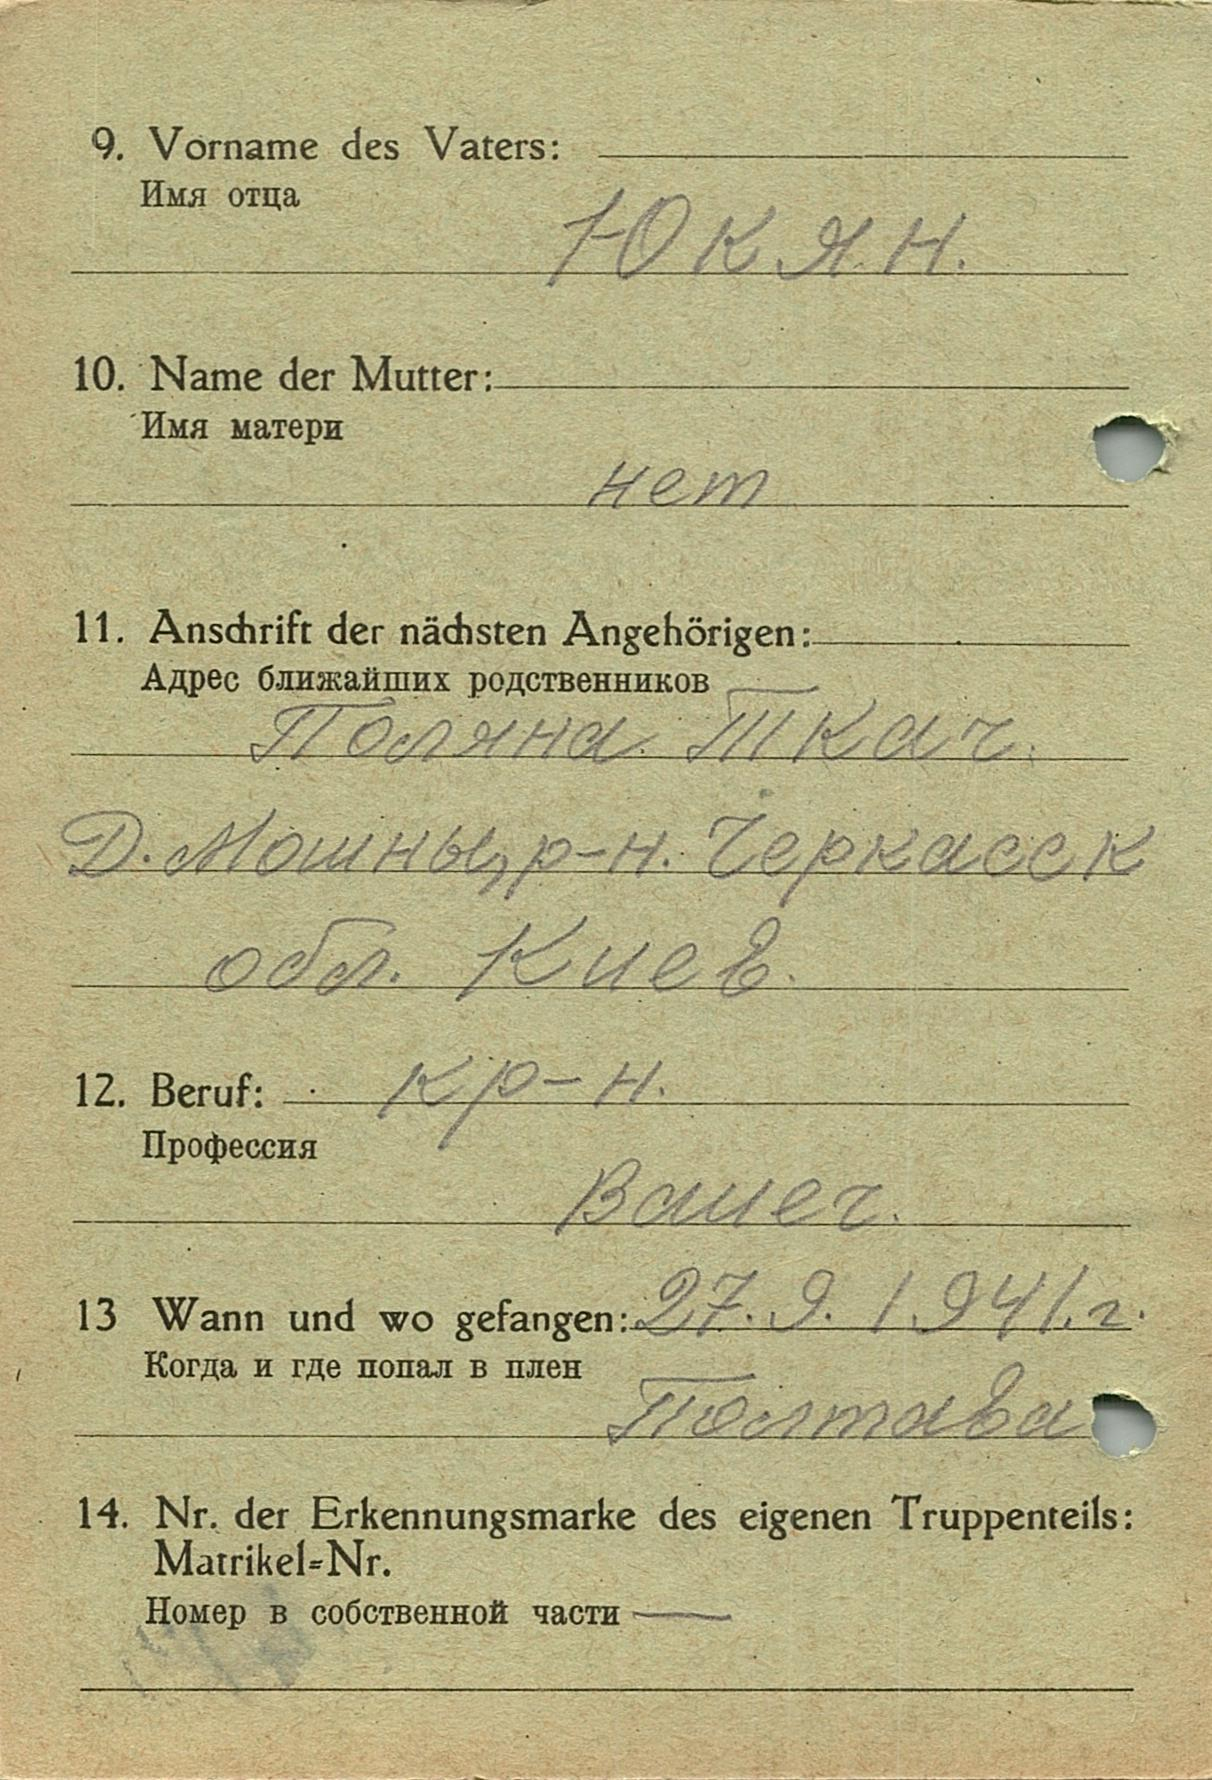 9. Vorname des Vaters:
Имя отца
Юкян.
10. Name der Mutter:
Имя матери
нет
11. Anschrift der nächsten Angehörigen:
Адрес ближайших родственников
Поляна Ткач.
Д. Мошны, р-н. Черкасск
обл. Киев.
12. Beruf: кр-н.
Профессия
13 Wann und wo gefangen: 27. 9. 1941. г.
Когда и где попал в плен
Полтава
14. Nr. der Erkennungsmarke des eigenen Truppenteils:
Matrikel=Nr.
Номер в собственной части —